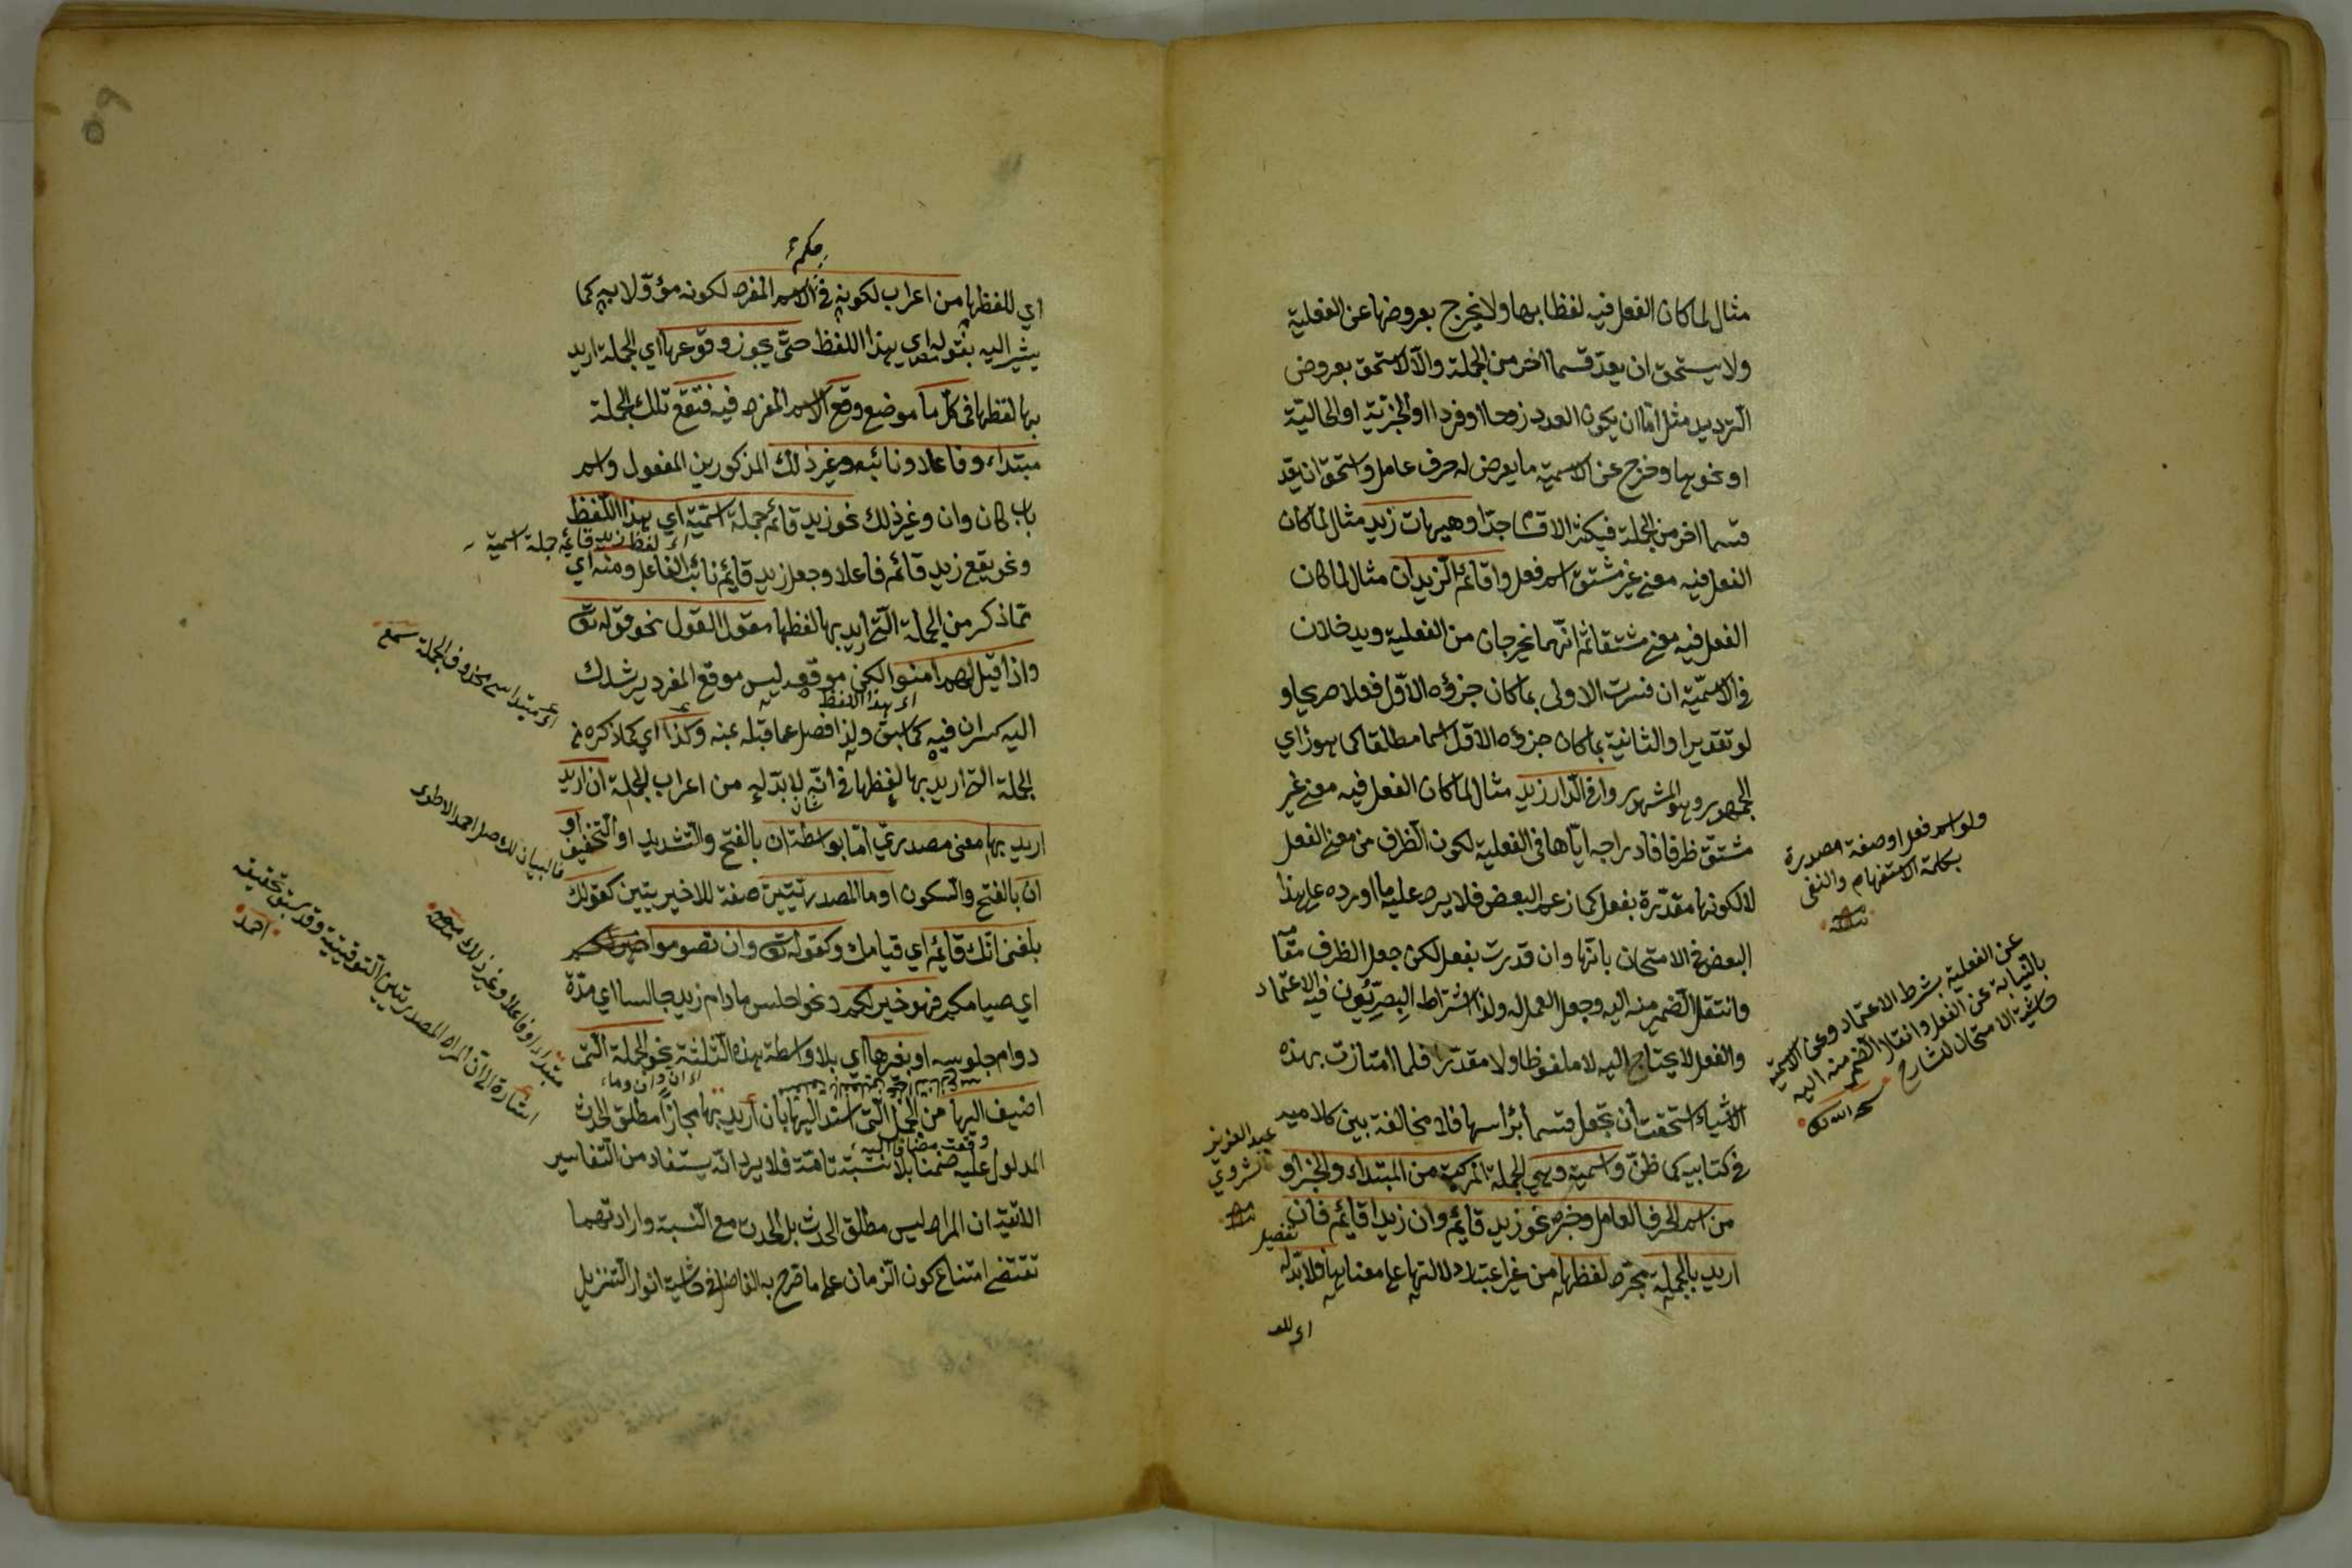 مثال لما كان الفعل فيه لفظا بها ولا يخرج بعروضها عن الفعلية
ولا يستحق ان يعدّ قسما اخر من الجملة والّا لاستحق بعروض
الترديد مثل امّا ان يكون العدد زوجا او فردا او الخبريّة او الحاليّة
او نحوها وخرج عن الاسمية ما يعرض له حرف عامل واستحق ان يعد
قسما اخر من الجملة فيكثر الاقسام جدّا وهيهات زيد مثال لما كان
الفعل فيه معنى غير مشتق اسم فعل واقائم الزيدان مثال لما كان
الفعل فيه معنى مشتقا ثم انّهما يخرجان من الفعلية ويدخلان
في الاسمّية ان فسرت الاولى بما كان جزؤه الاوّل فعلا صريحا و
لو تقديرا والثانية بما كان جزؤه الاوّل اسما مطلقا كما هو راي
الجمهور وهو المشهور وافي الدار زيد مثال لما كان الفعل فيه معنى غير
مشتق ظرفا فادراجه ايّاها في الفعلية لكون الظرف من معنى الفعل
لا لكونها مقدّرة بفعل كما زعم البعض فلا يرد عليه ما اورده على هذا
البعض في الامتحان بانّها وان قدرت بفعل لكن جعل الظرف مقامه
وانتقل الضمير منه اليه وجعل العمل له ولذا اشتراط البصريّون فيه الاعتماد
والفعل لا يحتاج اليه لا ملفوظا ولا مقدّرا فلما امتازت بهذه
الاشياء استحقت ان تجعل قسما برأسها فلا مخالفة بين كلاميه
في كتابيه كما ظنّ واسمية وهي الجملة المركبة من المبتداء والخبر او
من اسم الحرف العامل وخبره نحو زيد قائم وان زيدا قائم فان
اريد بالجملة مجرّد لفظها من غير اعتبار دلالتها على معناها فلا بدّ له
اى للفـ
ولو اسم فعل او صفة مصدرة
بكلمة الاستفهام والنفى
منه
عن الفعلية بشرط الاعتماد وعن الاسمية
بالنيابة عن الفعل وانتقال الضمير منه اليه
حاشية الامتحان للشارح
عبد العزيز
منه
تفصيل
حكمه
اي للفظها من اعراب لكونه في الاسم المفرد لكونه مؤوّلا به كما
يشير اليه بقوله اي بهذا اللفظ حتّى يجوز وقوعها اي الجملة اريد
بها لفظها في كلّ ما موضع وقع الاسم المفرد فيه فتقع تلك الجملة
مبتداء وفاعلا ونائبه وغير ذلك المذكور من المفعول واسم
باب كان وان وغير ذلك نحو زيد قائم جملة اسميّة اي هذا اللفظ
اى لفظ زيد قائم جملة اسمية
ونحو يقع زيد قائم فاعلا وجعل زيد قائم نائب الفاعل ومنه اي
ممّا ذكر من الجملة الّتي اريد بها لفظها مقول القول نحو قوله تع
واذا قيل لهم امنوا لكن موقعه ليس موقع المفرد يرشدك
اى بهذا اللفظ
اليه كسران فيه كما سبق ولذا فصل عما قبله عنه وكذا اي كما ذكره في
الجملة الّتي اريد بها لفظها في انّه لا بدّ له من اعراب الجملة ان اريد
اريد بها معنى مصدريّ امّا بواسطة ان بالفتح والتشديد او التخفيف او
ان بالفتح والسكون او ما المصدريتين صفة للاخيريتين كقولك
بلغني انّك قائم اي قيامك وكقوله تع وان تصوموا خير لكم
اي صيامكم فهو خير لكم ونحو اجلس ما دام زيد جالسا اي مدّة
دوام جلوسه او بغيرها اي بلا واسطة بهذه الثلثة نحو الجملة الّتي
اى ان وان وما
اضيف اليها من الجمل الّتي اسند اليها بان اريد بها مجازا مطلق الحدث
وقعت مضافا اليه
المدلول عليه ضمنا بلا نسبة تامّة فلا يرد انّه يستفاد من التفاسير
الاتية ان المراد ليس مطلق الحدث بل الحدث مع النسبة وارادتهما
تقتضي امتناع كون الزمان على ما صرح به الفاضل في حاشية انوار التنزيل
اى مبتداء محذوف الجملة سمع
مبتداء او فاعلا وغير ذلك
اشارة الى ان المراد المصدريتين التوقيتية وقد سبق تحقيقه
احمد